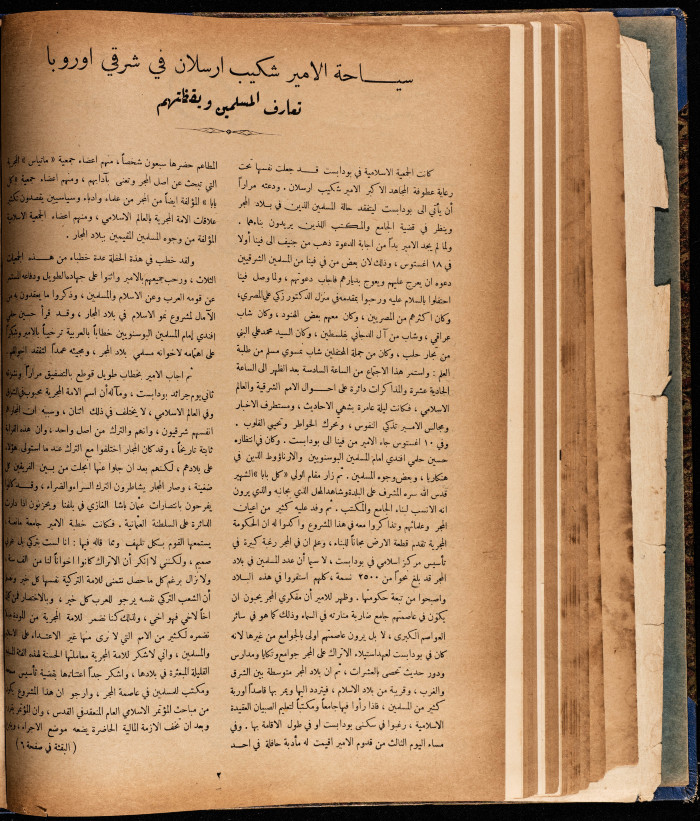 سياحة الامير شكيب ارسلان في شرقي اوروبا
تعارف المسلمين ويقظتهم
كانت الجمعية الاسلامية في بودابست قد جعلت نفسها تحت
رعاية عطوفة المجاهد الاكبر الامير شكيب ارسلان. ودعته مراراً
أن يأتي الى بودابست ليتفقد حالة المسلمين الذين في بلاد المجر
وينظر في قضية الجامع والمكتب اللذين يريدون بناءهما.
ولما لم يجد الامير بداً من اجابة الدعوة ذهب من جنيف الى فينا أولا
في ١٨ اغستوس، وذلك لان بعض من في فينا من المسلمين الشرقيين
دعوه ان يعرج عليهم ويعوج بديارهم فاجاب دعوتهم، ولما وصل فينا
احتفلوا بالسلام عليه ورحبوا بمقدمه في منزل الدكتور زكي علي المصري،
وكان اكثرهم من المصريين، وكان معهم بعض الهنود، وكان شاب
عراقي، وشاب من آل الدجاني بفلسطين، وكان السيد محمد علي البني
من تجار حلب، وكان من جملة المحتفلين شاب نمسوي مسلم من طلبة
العلم: واستمر هذا الاجتماع من الساعة السادسة بعد الظهر الى الساعة
الحادية عشرة والمذاكرات دائرة على احوال الامم الشرقية والعالم
الاسلامي، فكانت ليلة عامرة بشهي الاحاديث، ومستطرف الاخبار
ومجالس الامير تذكي النفوس، وتحرك الخواطر وتحيي القلوب.
وفي ١٠ اغستوس جاء الامير من فينا الى بودابست. وكان في انتظاره
حسين حلمي افندي امام المسلمين البوسنويين والارناؤوط الذين في
هنكاريا، وبعض وجوه المسلمين. ثم زار مقام الولي «كل بابا» الشهير
قدس الله سره المشرف على البلدة وشاهد المحل الذي بجانبه والذي يرون
انه الانسب لبناء الجامع والمكتب. ثم وفد عليه كثير من اعيان
المجر وعلمائهم وتذاكروا معه في هذا المشروع واكدوا له ان الحكومة
المجرية تقدم قطعة الارض مجاناً للبناء، وعلم ان في المجر رغبة كبيرة في
تأسيس مركز اسلامي في بودابست، لا سيما أن عدد المسلمين في بلاد
المجر قد بلغ نحواً من ٢٥٠٠ نسمة، كلهم استقروا في هذه البلاد
واصبحوا من تبعة حكومتها. وظهر للامير أن مفكري المجر يحبون ان
يكون في عاصمتهم جامع ضاربة منارته في السماء وذلك كما هو في سائر
العواصم الكبرى، لا بل يرون عاصمتهم اولى بالجوامع من غيرها لانه
كان في بودابست لعهد استيلاء الاتراك على المجر جوامع وتكايا ومدارس
ودور حديث تحصى بالعشرات، ثم ان بلاد المجر متوسطة بين الشرق
والغرب، وقريبة من بلاد الاسلام، فيتردد اليها ويمر بها قاصداً اوربة
كثير من المسلمين، فاذا رأوا فيها جامعاً ومكتباً لتعليم الصبيان العقيدة
الاسلامية، رغبوا في سكنى بودابست او في طول الاقامة بها. وفي
مساء اليوم الثالث من قدوم الامير اقيمت له مأدبة حافلة في احد
المطاعم حضرها سبعون شخصاً، منهم اعضاء جمعية «مانياس»
التي تبحث عن اصل المجر وتعنى بآدابهم، ومنهم اعضاء جمعية «كل
بابا» المؤلفة ايضاً من المجر من علماء وادباء وسياسيين يقصدون
علاقات الامة المجرية بالعالم الاسلامي، ومنهم اعضاء الجمعية الاسلامية
المؤلفة من وجوه المسلمين المقيمين ببلاد المجار.
ولقد خطب في هذة الحفلة عدة خطباء من هذه الجمعيات
الثلاث، ورحب جميعهم بالامير واثنوا على جهاده الطويل ودفاعه
عن قومه العرب وعن الاسلام والمسلمين، وذكروا ما يعقدون من
الآمال لمشروع نمو الاسلام في بلاد المجار، وقد قرأ حسين حلمي
افندي إمام المسلمين البوسنويين خطاباً بالعربية ترحيباً بالامير وشكراً
على اهتمامه لاخوانه مسلمي بلاد المجر، ومجيئه عمداً لتفقد احوالهم.
ثم اجاب الامير بخطاب طويل قوطع بالتصفيق مراراً
ثاني يوم جرائد بودابست، ومآله أن اسم الامة المجرية محبوب في الشرق
وفي العالم الاسلامي، لا يختلف في ذلك اثنان، وسببه ان المجار
انفسهم شرقيون، وانهم والترك من اصل واحد، وان هذه القرابة
ثابتة تاريخاً، وقد كان المجار اختلفوا مع الترك عند ما استولى هؤلاء
على بلادهم، لكنهم بعد ان جلوا عنها انجلت من بين الفريقين كل
ضغينة، وصار المجار يشاطرون الترك السراء والضراء، وقد كانوا
يفرحون بانتصارات عثمان باشا الغازي في بلفنا ويحزنون اذا دارت
الدائرة على السلطنة العثمانية. فكانت خطبة الامير جامعة
يستمعها القوم بكل تلهف ومما قاله فيها: انا لست بتركي بل عربي
صميم، ولكنني لا انكر أن الاتراك كانوا اخواناً لنا من الف سنة
ولا نزال برغم كل ما حصل نتمنى للامة التركية نفسها كل خير
أن الشعب التركي نفسه يرجو للعرب كل خير، وبالاختصار فمن كان
أخاً لاخي فهو اخي، ولذلك كنا نضمر للامة المجرية من المودة
نضمره لكثير من الامم التي لا نرى منها غير الاعتداء على الاسلام
والمسلمين، واني لاشكر للامة المجرية معاملتها الحسنة لهذه الفئة
القليلة المبعثرة في بلادها، واشكر جداً اعتناءها بقضية تأسيس مسجد
ومكتب للمسلمين في عاصمة المجر، وارجو ان هذا المشروع
من مباحث المؤتمر الاسلامي العام المنعقد في القدس، وان المؤتمر
وبعد ان تخف الازمة المالية الحاضرة يضعه موضع الاجراء،
(البقية في صفحة ٦)
٢